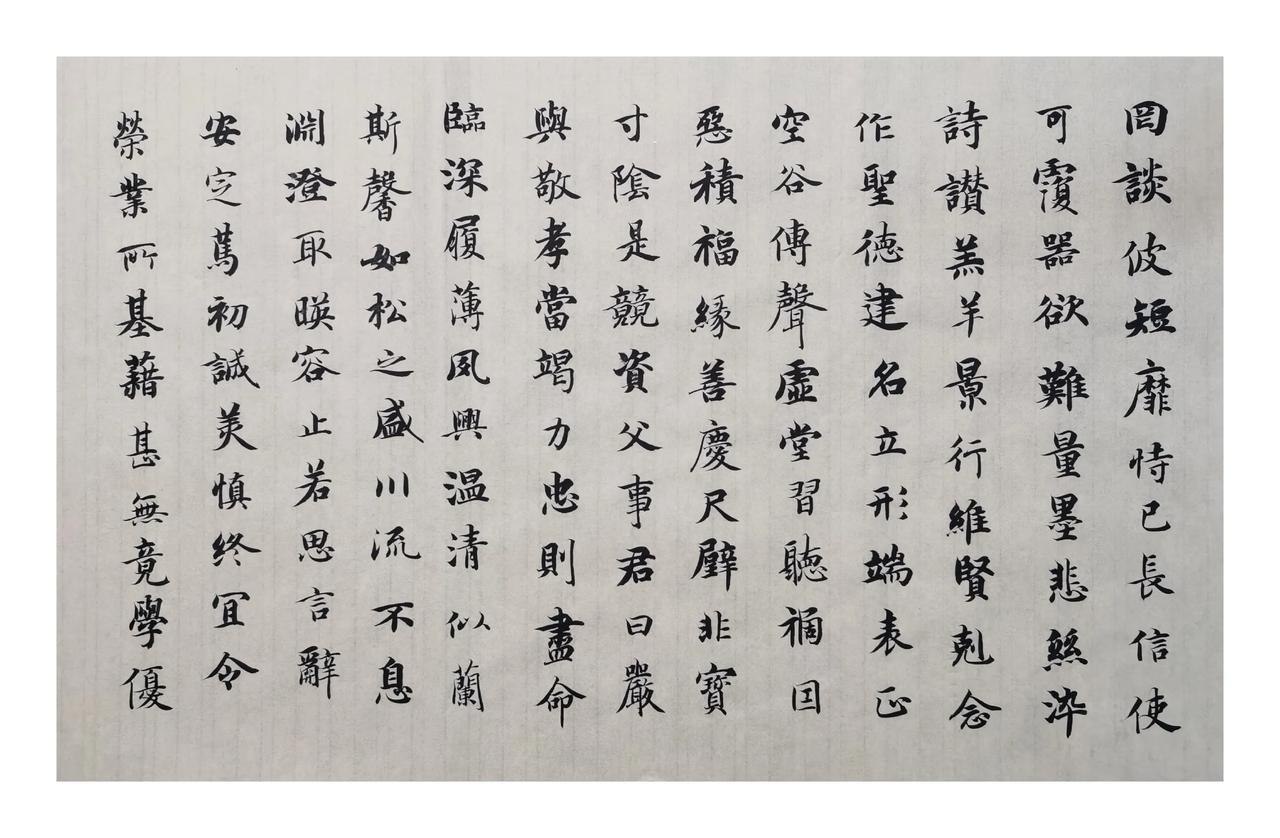 罔談彼短靡恃已長信使
可覆器欲難量墨悲絲淬
詩讃羔羊景行維賢剋念
作聖德建名立形端表正
空谷傳聲虛堂習聽禍因
惡積福緣善慶尺璧非寶
寸陰是競資父事君曰嚴
與敬孝當竭力忠則盡命
臨深履薄夙興温清似蘭
斯馨如松之盛川流不息
淵澄取暎容止若思言辭
安定篤初誠美慎終宜令
榮業所基藉甚無竟學優